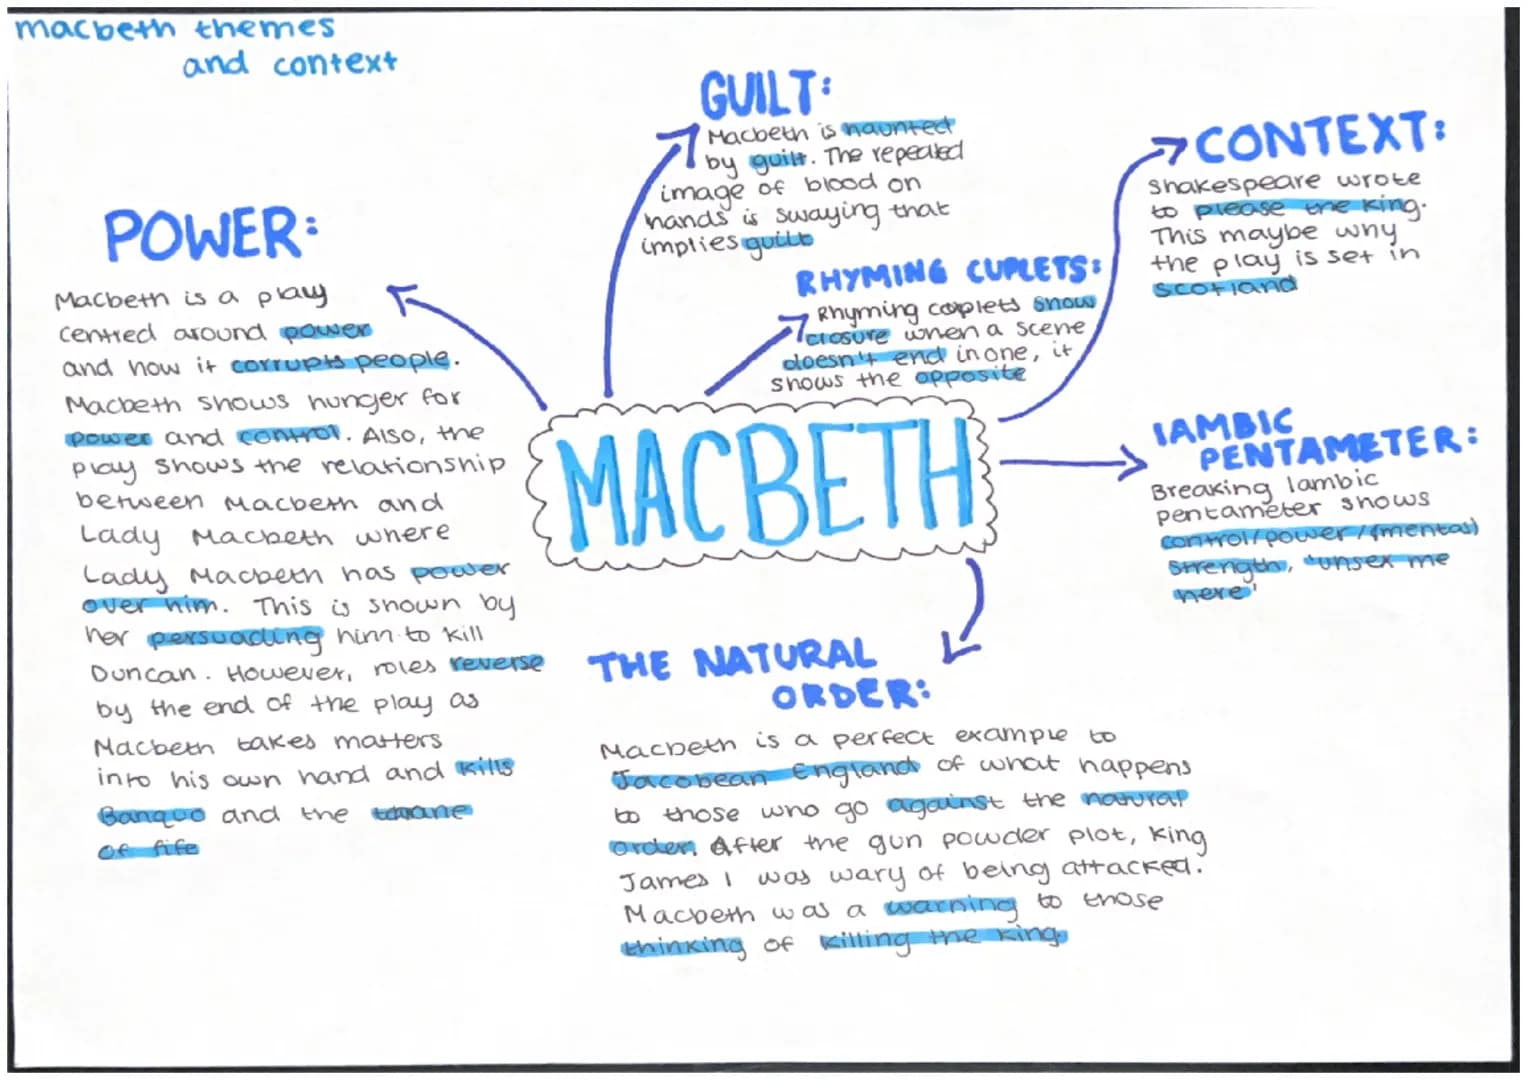 macbeth themes
and context
POWER:
Macbeth is a play
centred around power
and how it corrupts people.
Macbeth shows hunger for
power and control. Also, the
play shows the relationship
between Macbeth and
Lady Macbeth where
Lady Macbeth has power
over him. This is shown by
her persuading him to kill
Duncan. However, roles reverse
by the end of the play as
Macbeth takes matters
into his own hand and kills
Banquo and the thane
of fife
GUILT:
Macbeth is haunted
by guilt. The repeated
image of blood on
hands is swaying that
implies guilt
RHYMING CUPLETS:
Rhyming couplets show
closure when a scene
doesn't end in one, it
shows the opposite
CONTEXT:
Shakespeare wrote
to please the king.
This maybe why
the play is set in
Scotland
MACBETH
IAMBIC
PENTAMETER:
Breaking Iambic
pentameter shows
control/power/(mental)
strength, 'unsex me
here'
THE NATURAL
ORDER:
Macbeth is a perfect example to
Jacobean England of what happens
to those who go against the natural
order. After the gun powder plot, King
James I was wary of being attacked.
Macbeth was a warning to those
thinking of killing the king.